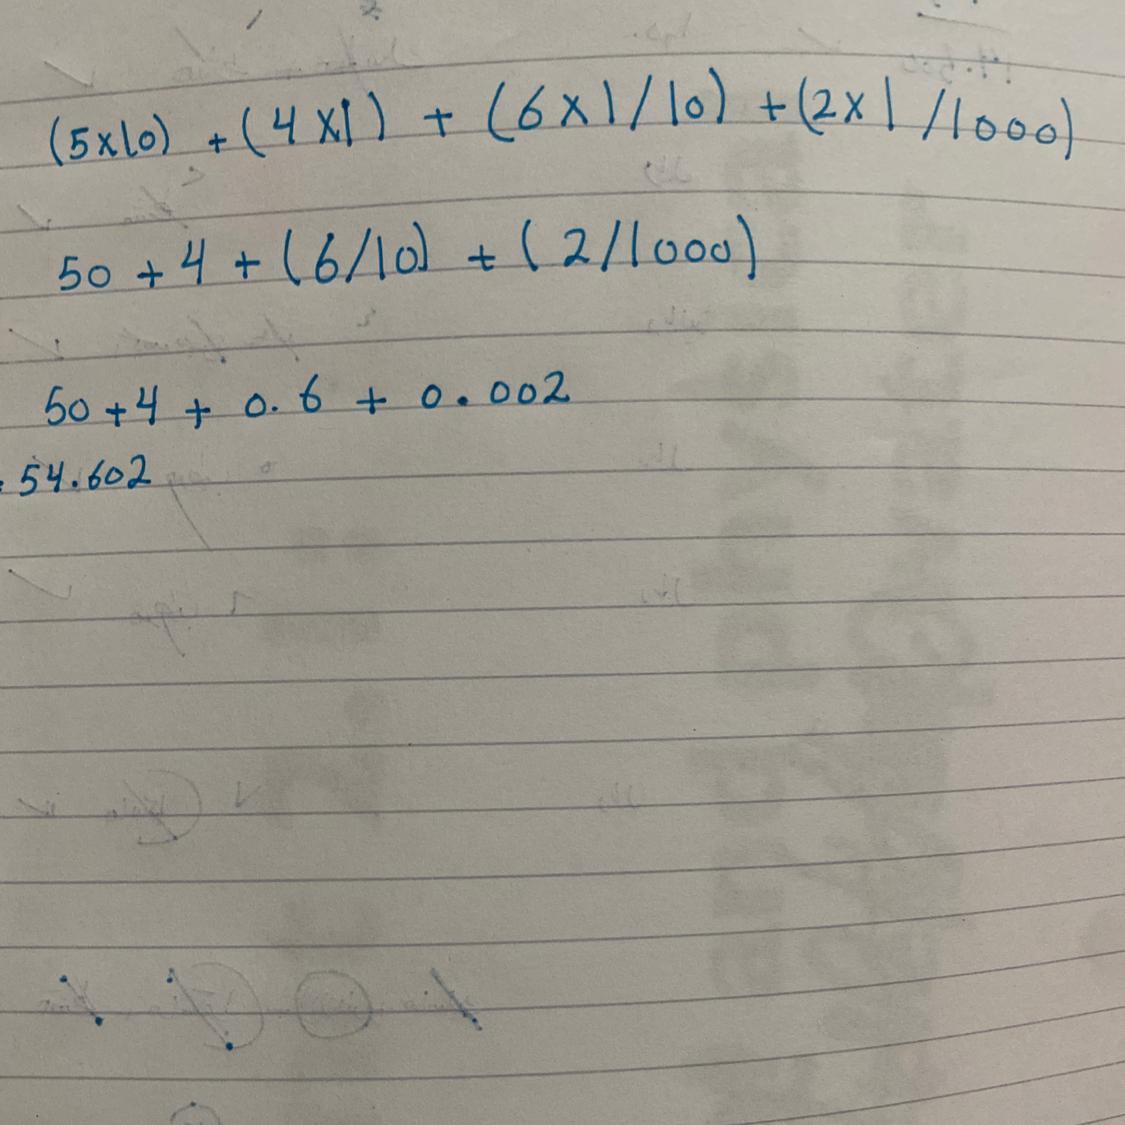 (5x10) + (4x1) + (6x1/10) + (2x1/1000)
50 + 4 + (6/10) + (2/1000)
50 + 4 + 0.6 + 0.002
54.602